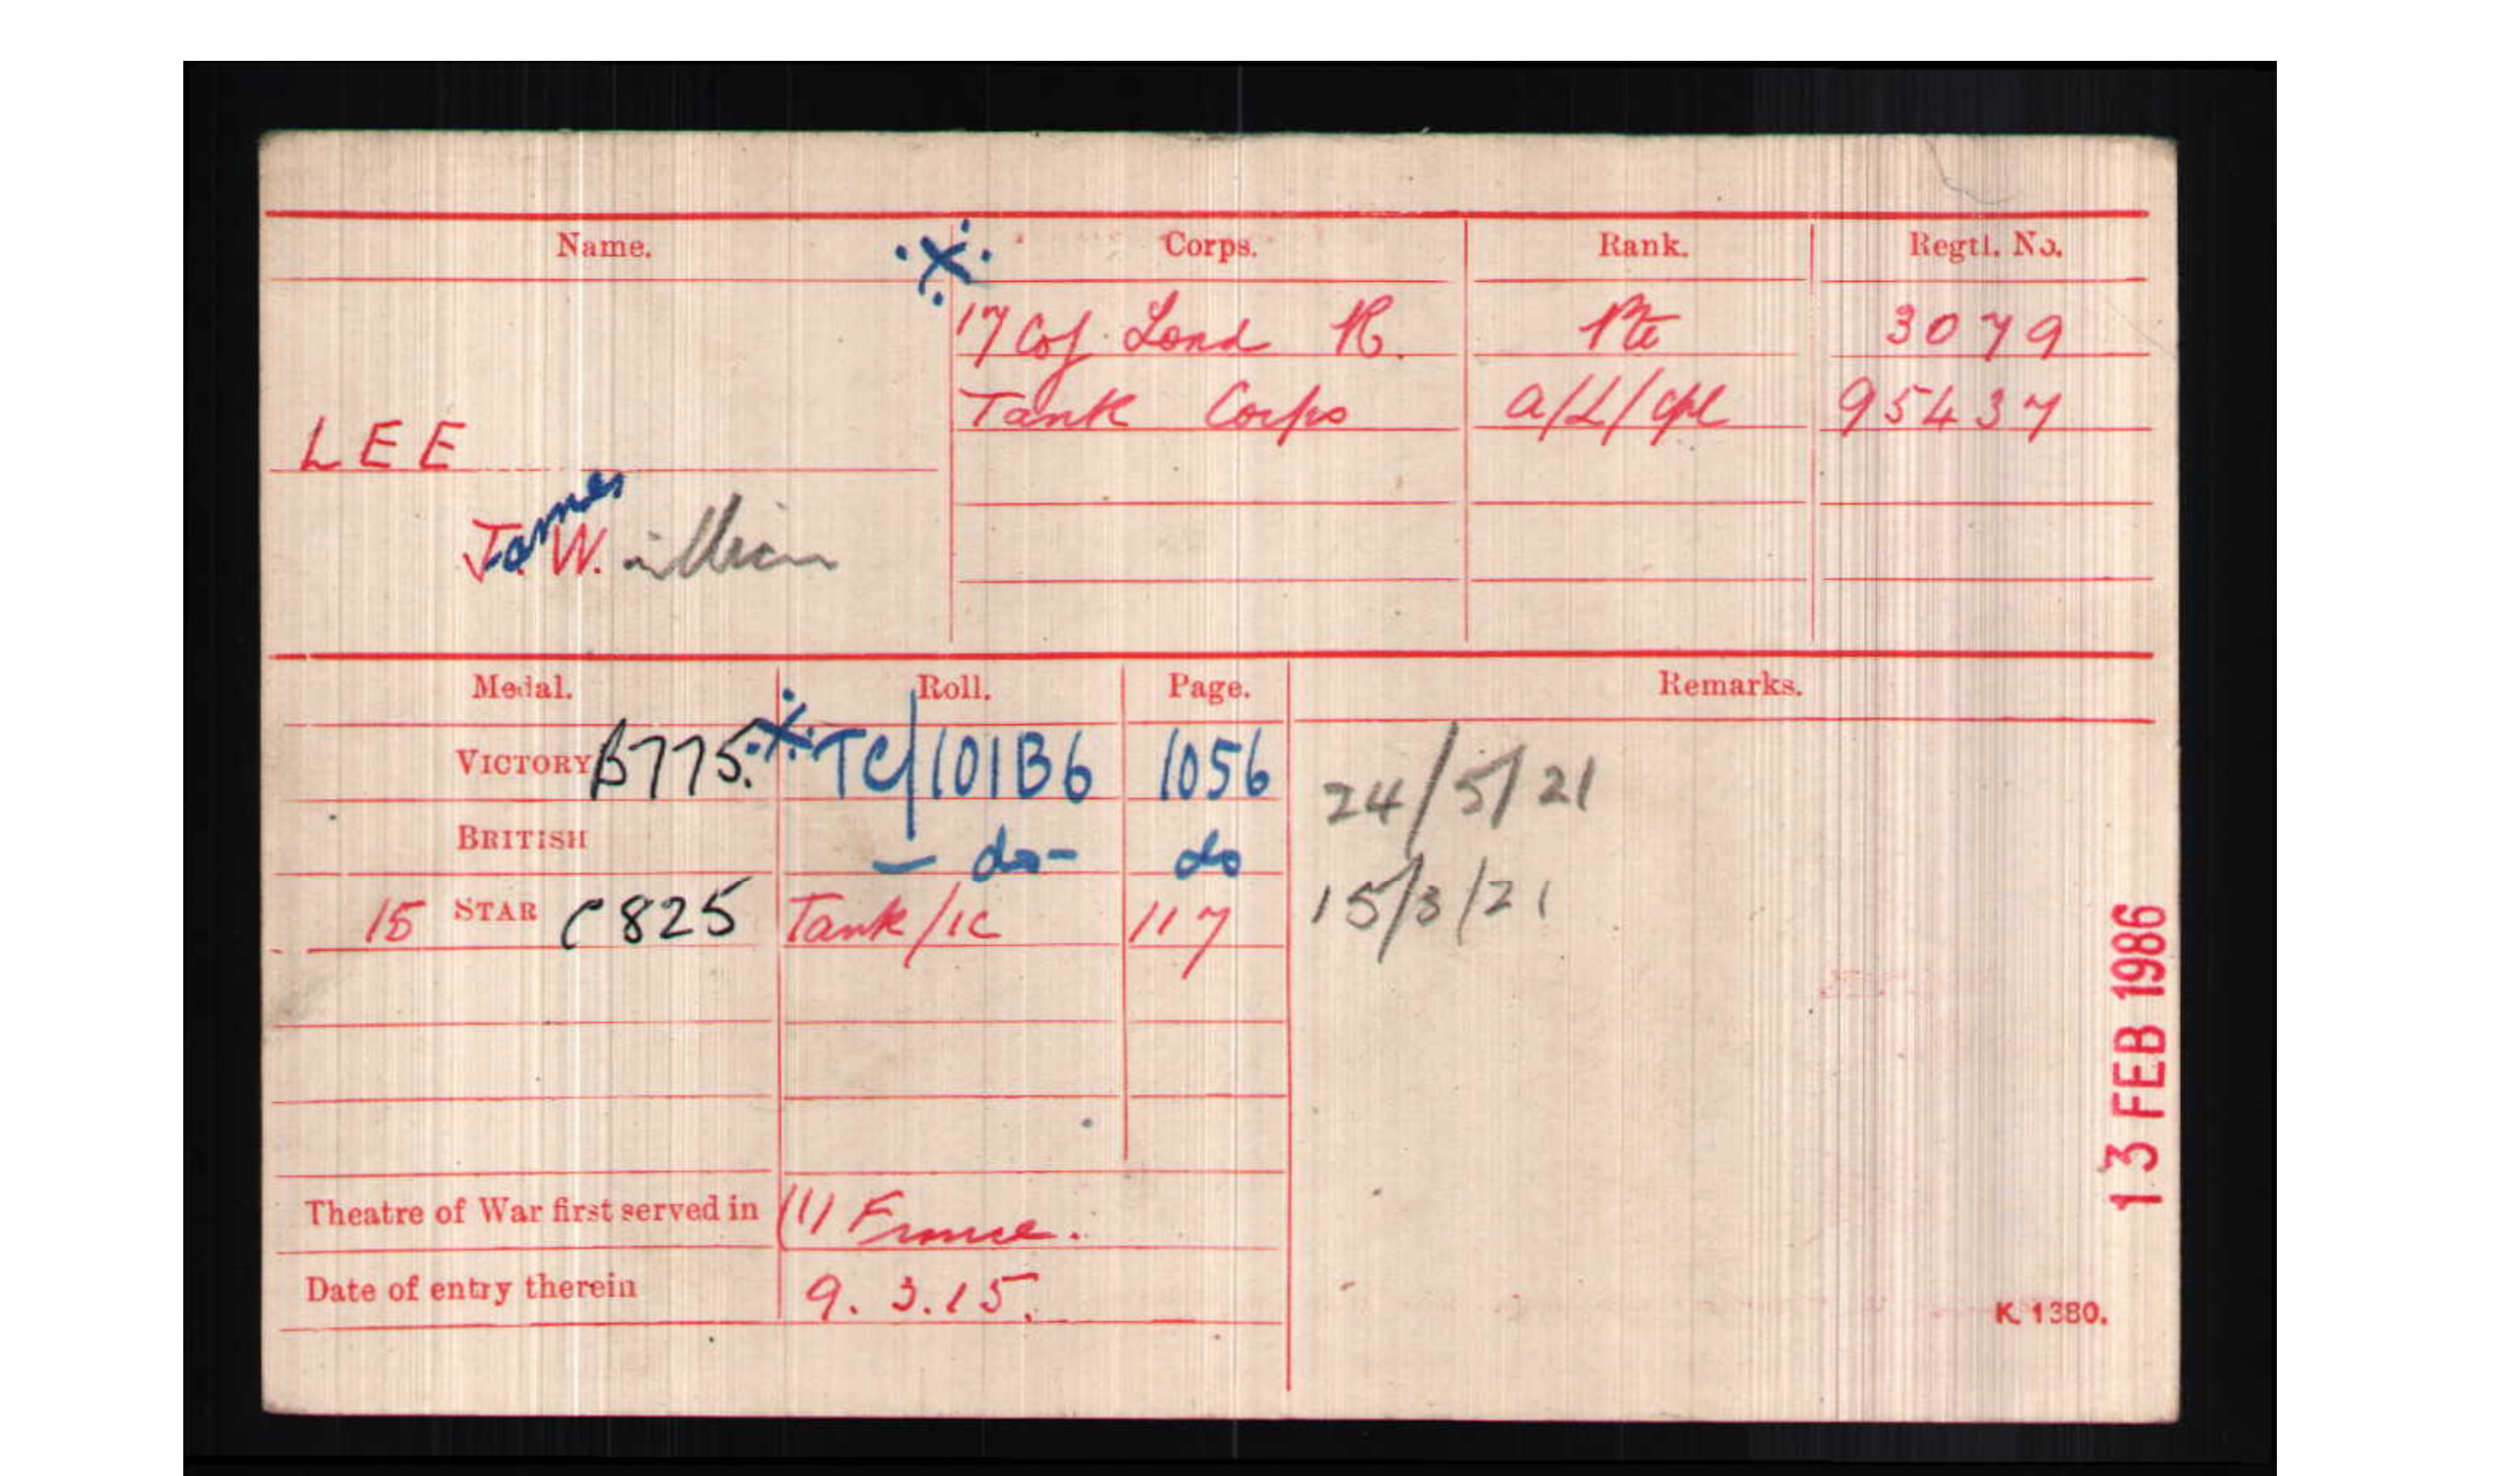 Name. Corps. Rank. Regtl. No.
17 Cof Lond R. Pte 3079
Tank Corps a/L/Cpl 95437
LEE
James William
Medal. Roll. Page. Remarks.
VICTORY B775. TC/101B6 1056 24/5/21
BRITISH - do - do
15 STAR C825 Tank/1C 117 15/3/21
13 FEB 1986
Theatre of War first served in (1) France.
Date of entry therein 9.3.15.
K 1380.